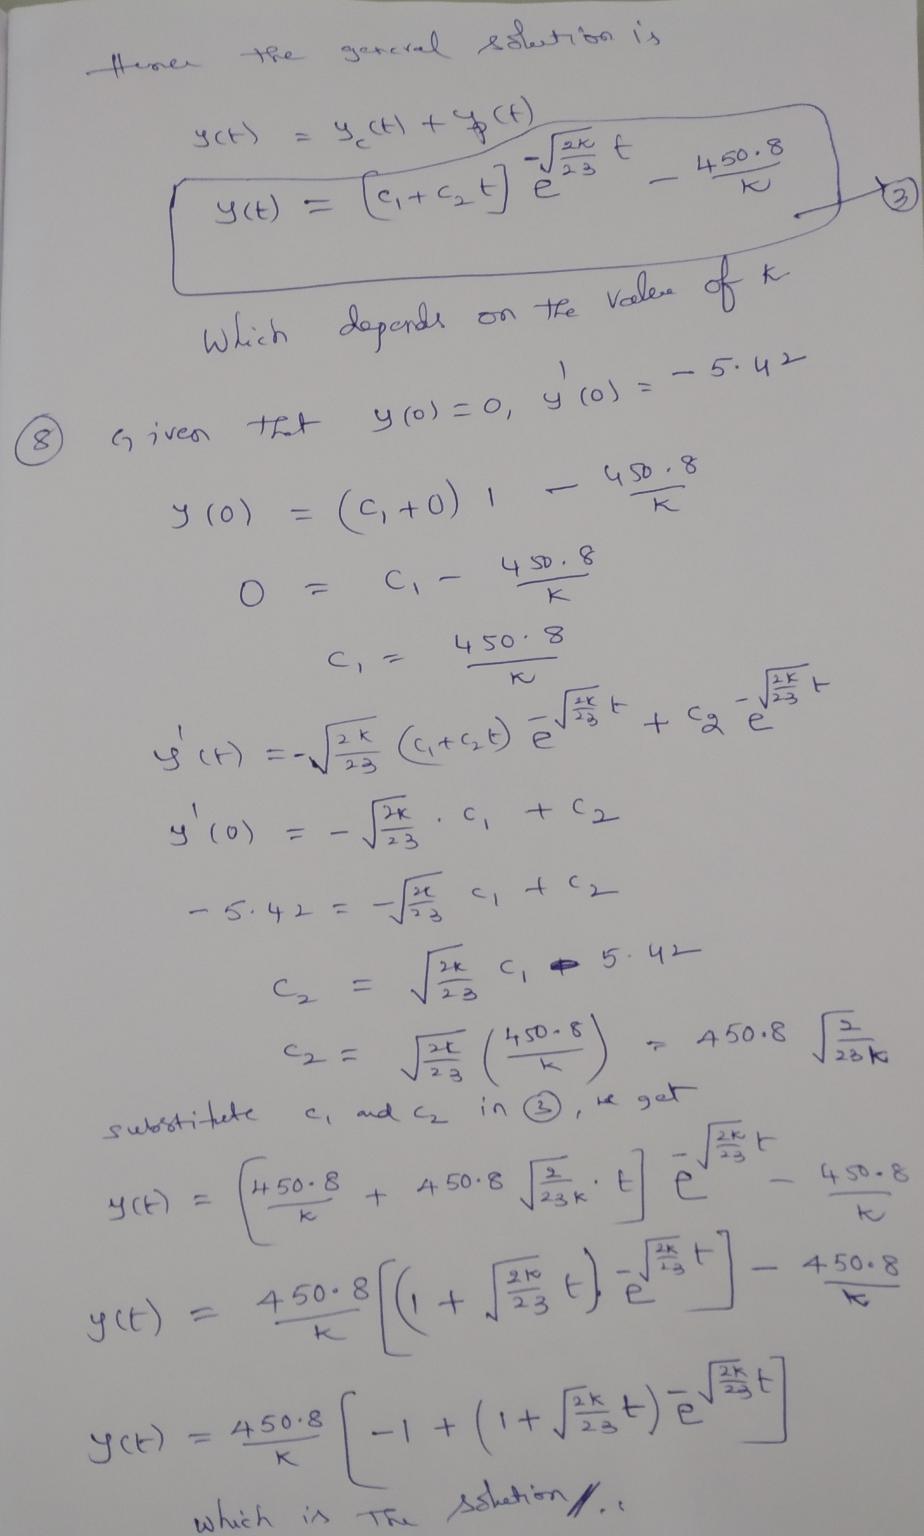 Hence the general solution is
y(t) = y_c(t) + y_p(t)
y(t) = [c₁+c₂t] e^{-√(2K/23) t} - 450.8/K → (3)
Which depends on the value of K
(8) Given that y(0)=0, y'(0) = -5.42
y(0) = (c₁+0) 1 - 450.8/K
0 = c₁ - 450.8/K
c₁ = 450.8/K
y'(t) = -√(2K/23) (c₁+c₂t) e^{-√(2K/23) t} + c₂ e^{-√(2K/23) t}
y'(0) = -√(2K/23) . c₁ + c₂
-5.42 = -√(2K/23) c₁ + c₂
c₂ = √(2K/23) c₁ 5.42
c₂ = √(2K/23) (450.8/K) = 450.8 √(2/23K)
substitute c₁ and c₂ in (3), we get
y(t) = [450.8/K + 450.8 √(2/23K) . t] e^{-√(2K/23) t} - 450.8/K
y(t) = 450.8/K [(1 + √(2K/23) t) . e^{-√(2K/23) t}] - 450.8/K
y(t) = 450.8/K [-1 + (1+√(2K/23) t) e^{-√(2K/23) t}]
which is the solution //..